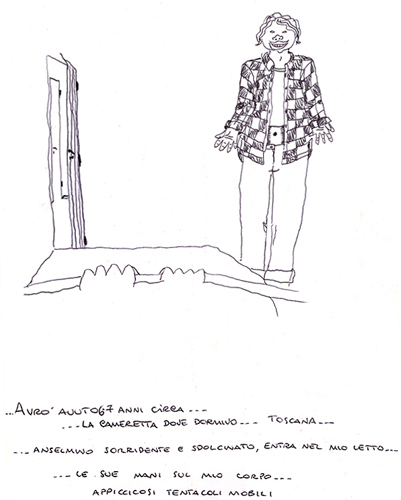 ...AVRO' AVUTO 67 ANNI CIRCA ---
---LA CAMERETTA DOVE DORMIVO--- TOSCANA---
--- ANSELMINO SORRIDENTE E SDOLCINATO, ENTRA NEL MIO LETTO---
--- LE SUE MANI SUL MIO CORPO---
APPICCICOSI TENTACOLI MOBILI